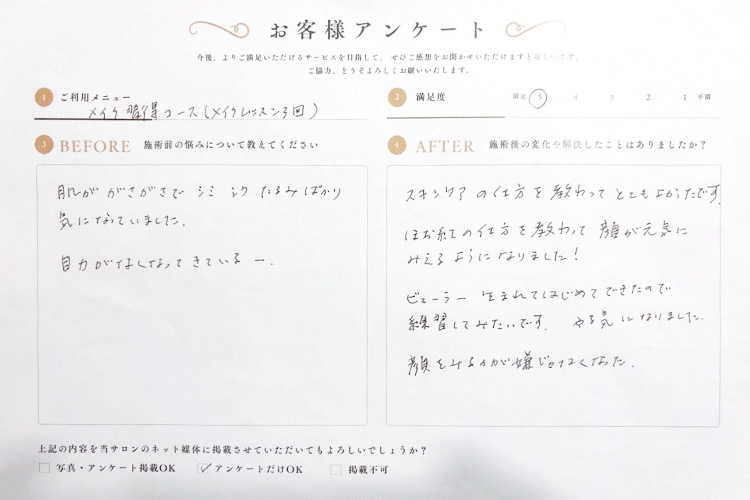 お客様アンケート
今後、よりご満足いただけるサービスを目指して、ぜひご感想をお聞かせいただけますと嬉しいです。
ご協力、どうぞよろしくお願いいたします。
1 ご利用メニュー
メイク習得コース(メイクレッスン3回)
2 満足度 満足 5 4 3 2 1 不満
3 BEFORE 施術前の悩みについて教えてください
肌が がさがさで シミ シワ たるみばかり
気になっていました。
目力がなくなってきているー.
4 AFTER 施術後の変化や解決したことはありましたか?
スキンケアの仕方を教わってとてもよかったです。
ほお紅の仕方を教わって顔が元気に
みえるようになりました!
ビューラー 生まれてはじめてできたので
練習してみたいです。 やる気になりました。
顔をみるのが嫌じゃなくなった.
上記の内容を当サロンのネット媒体に掲載させていただいてもよろしいでしょうか?
写真・アンケート掲載OK アンケートだけOK 掲載不可